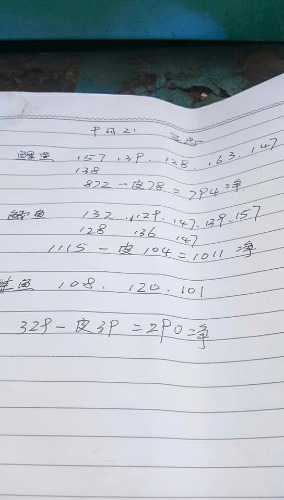 鱼 157 . 139 . 128 . 163 . 147
138
872 - 皮78 = 794净
鱼 132 . 129 . 147 . 139 . 157
128 136 147
1115 - 皮104 = 1011净
鱼 108 . 120 . 101
329 - 皮39 = 290净